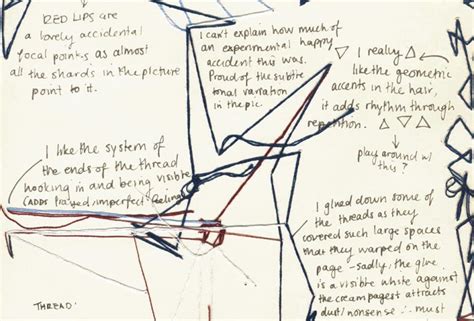 RED LIPS are
a lovely accidental
focal point, as almost
all the shards in the picture
point to it.
I can't explain how much of
an experimental happy
accident this was.
Proud of the subtle
tonal variation
in the pic.
I really
like the geometric
accents in the hair,
it adds rhythm through
repetition.
play around w/
this?
I like the system of
the ends of the thread
hooking in and being visible
(ADDS frayed/imperfect feeling)
I glued down some of
the threads as they
covered such large spaces
that they warped on the
page - sadly, the glue
is a visible white against
the cream page & attracts
dust/nonsense ∴ must
THREAD